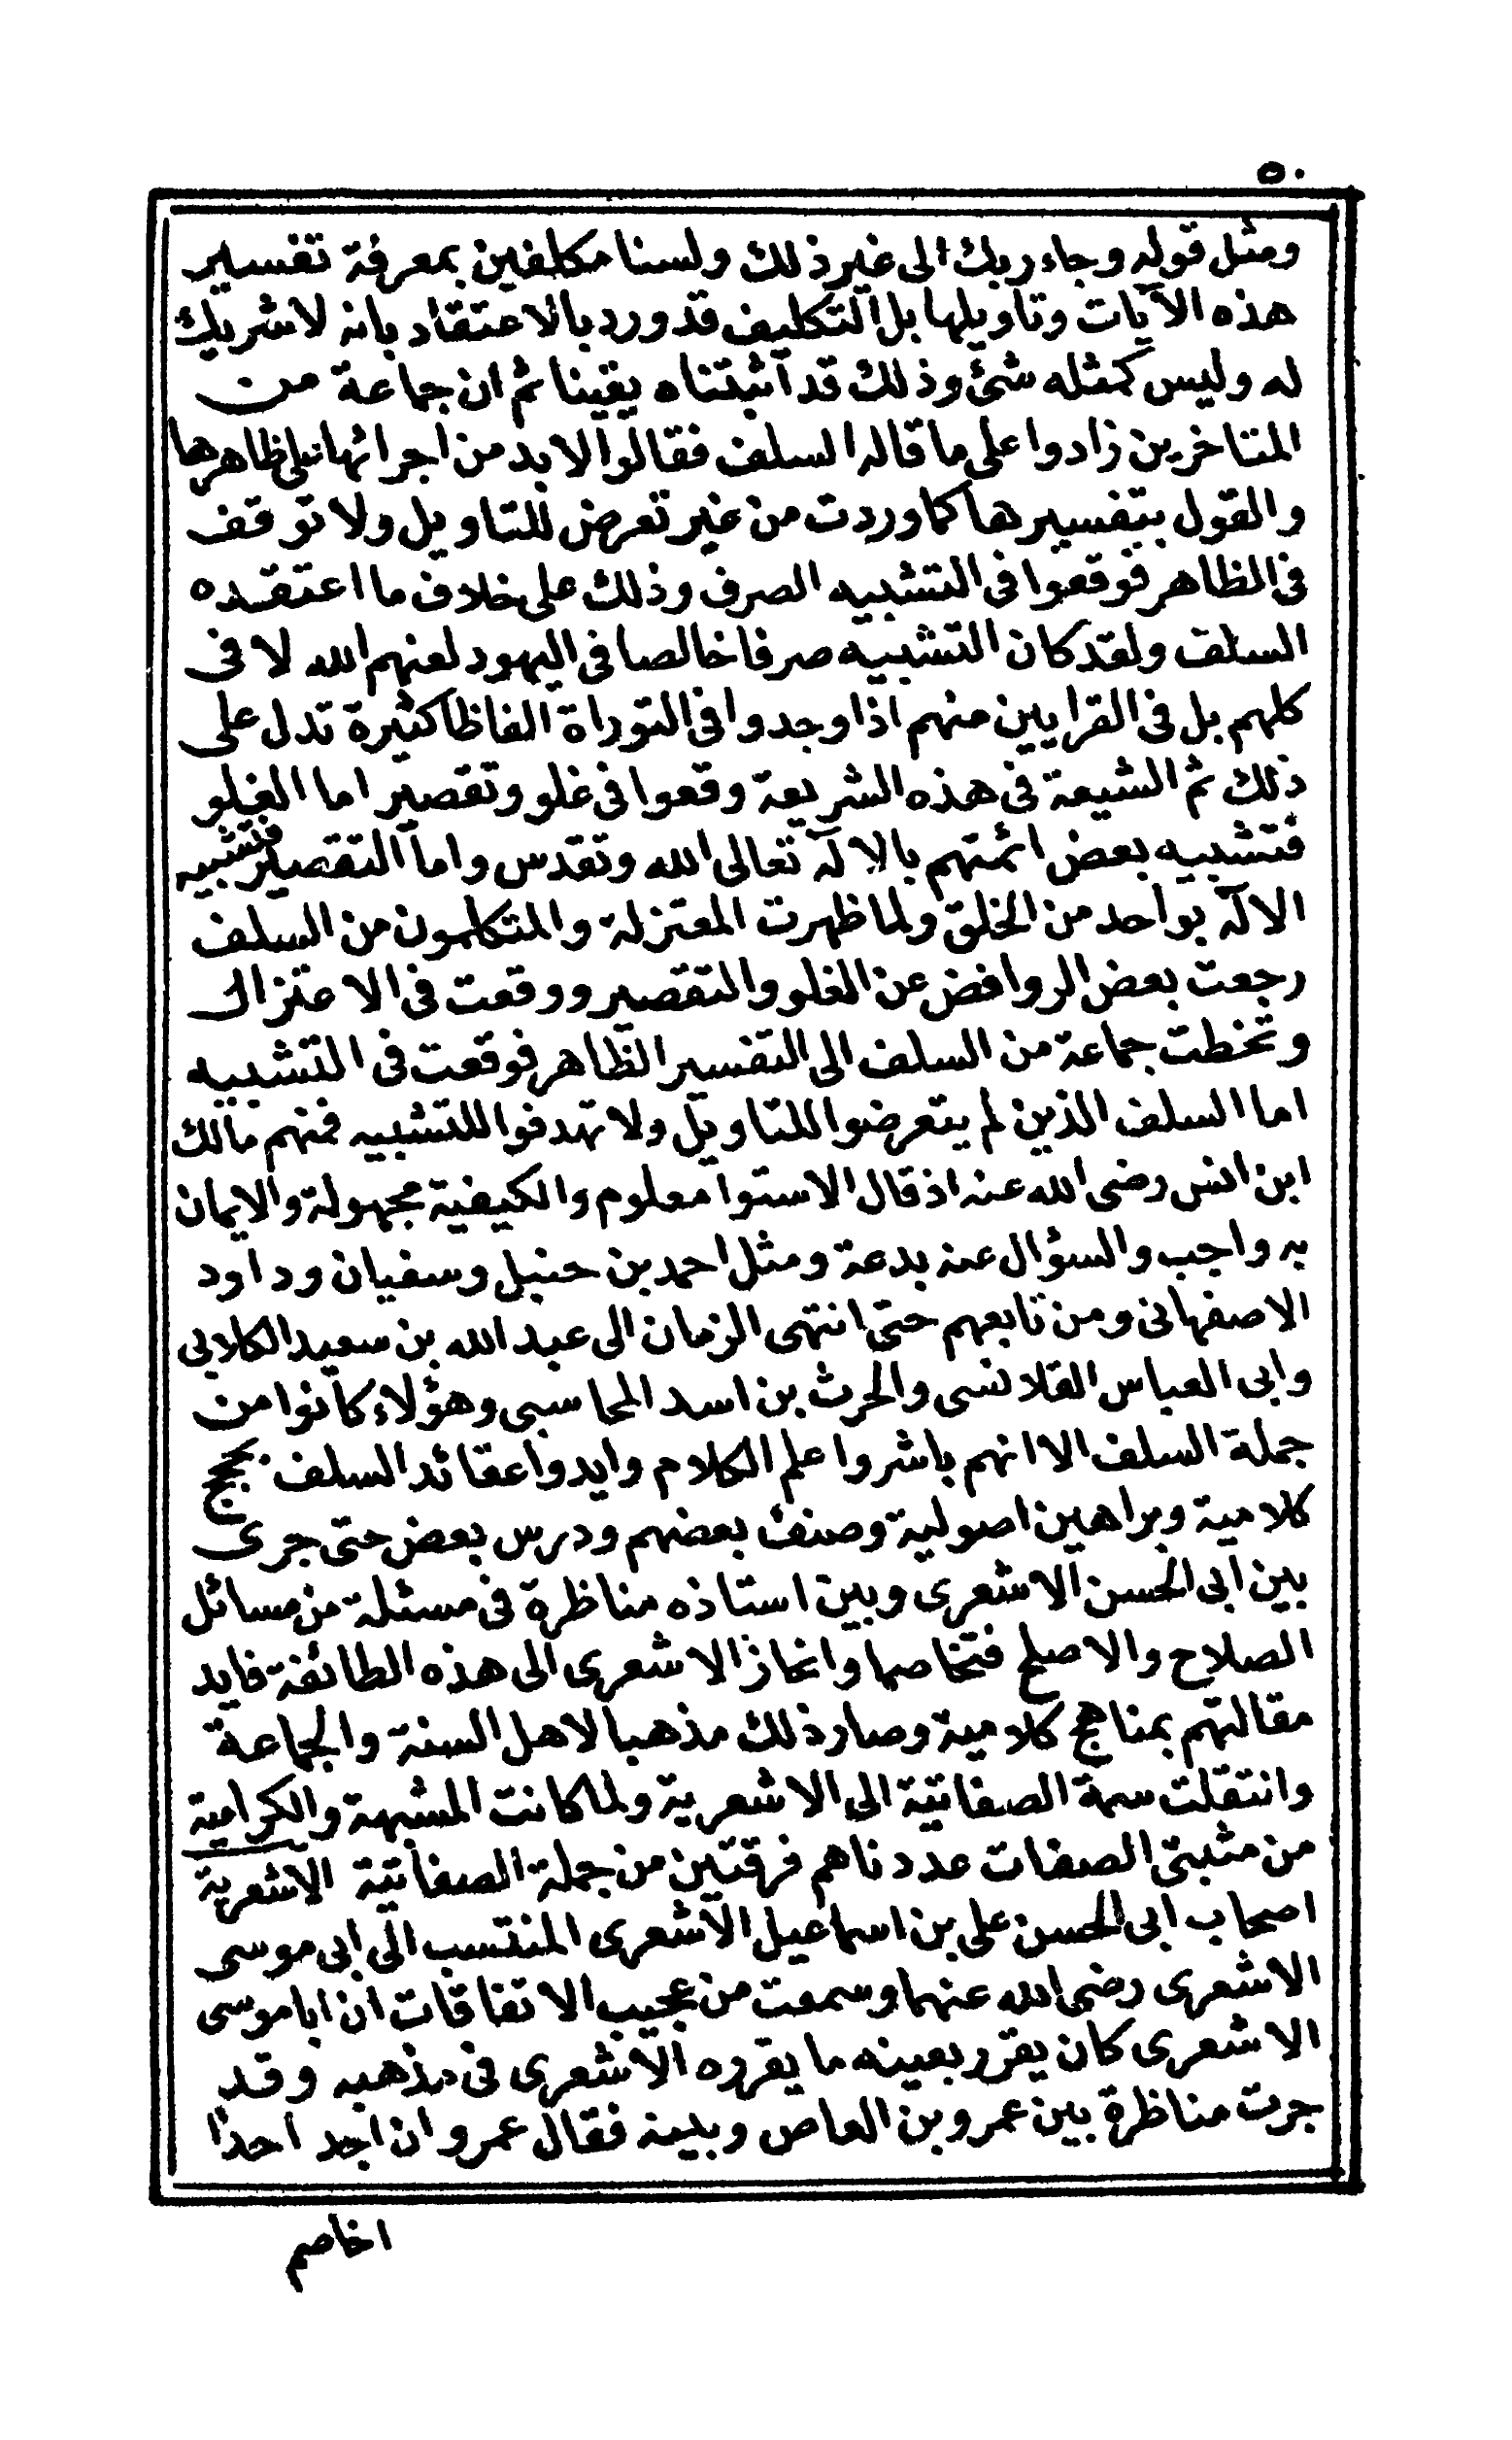 ٥٠
ومثل قوله وجاء ربك الى غير ذلك ولسنا مكلفين بمعرفة تفسير
هذه الآيات وتاويلها بل التكليف قد ورد بالاعتقاد بانه لا شريك
له وليس كمثله شئ وذلك قد اثبتناه يقينا ثم ان جماعة من
المتاخرين زادوا على ما قاله السلف فقالوا لا بد من اجرائها على ظاهرها
والقول بتفسيرها كما وردت من غير تعرض للتاويل ولا توقف
فى الظاهر فوقعوا فى التشبيه الصرف وذلك على خلاف ما اعتقده
السلف ولقد كان التشبيه صرفا خالصا فى اليهود لعنهم الله لا فى
كلهم بل فى القرايين منهم اذا وجدوا فى التوراة الفاظا كثيرة تدل على
ذلك ثم الشيعة فى هذه الشريعة وقعوا فى غلو وتقصير اما الغلو
فتشبيه بعض ائمتهم بالاله تعالى الله وتقدس واما التقصير فتشبيه
الاله بواحد من الخلق ولما ظهرت المعتزلة والمتكلمون من السلف
رجعت بعض الروافض عن الغلو والتقصير ووقعت فى الاعتزال
وتخطت جماعة من السلف الى التفسير الظاهر فوقعت فى التشبيه
اما السلف الذين لم يتعرضوا للتاويل ولا تهدفوا للتشبيه فمنهم مالك
ابن انس رضى الله عنه اذ قال الاستوا معلوم والكيفية مجهولة والايمان
به واجب والسؤال عنه بدعة ومثل احمد بن حنبل وسفيان وداود
الاصفهانى ومن تابعهم حتى انتهى الزمان الى عبد الله بن سعيد الكلابى
وابى العباس القلانسى والحرث بن اسد المحاسبى وهؤلاء كانوا من
جملة السلف الا انهم باشروا علم الكلام وايدوا عقائد السلف بحجج
كلامية وبراهين اصولية وصنف بعضهم ودرس بعض حتى جرى
بين ابى الحسن الاشعرى وبين استاذه مناظرة فى مسئلة من مسائل
الصلاح والاصلح فتخاصما وانحاز الاشعرى الى هذه الطائفة فايد
مقالتهم بمناهج كلامية وصار ذلك مذهبا لاهل السنة والجماعة
وانتقلت سمة الصفاتية الى الاشعرية ولما كانت المشبهة والكرامية
من مثبتى الصفات عددناهم فرقتين من جملة الصفاتية الاشعرية
اصحاب ابى الحسن على بن اسماعيل الاشعرى المنتسب الى ابى موسى
الاشعرى رضى الله عنهما وسمعت من عجيب الاتفاقات ان ابا موسى
الاشعرى كان يقرر بعينه ما يقرره الاشعرى فى مذهبه وقد
جرت مناظرة بين عمرو بن العاص وبينه فقال عمرو ان اجد احدا
اخاصم